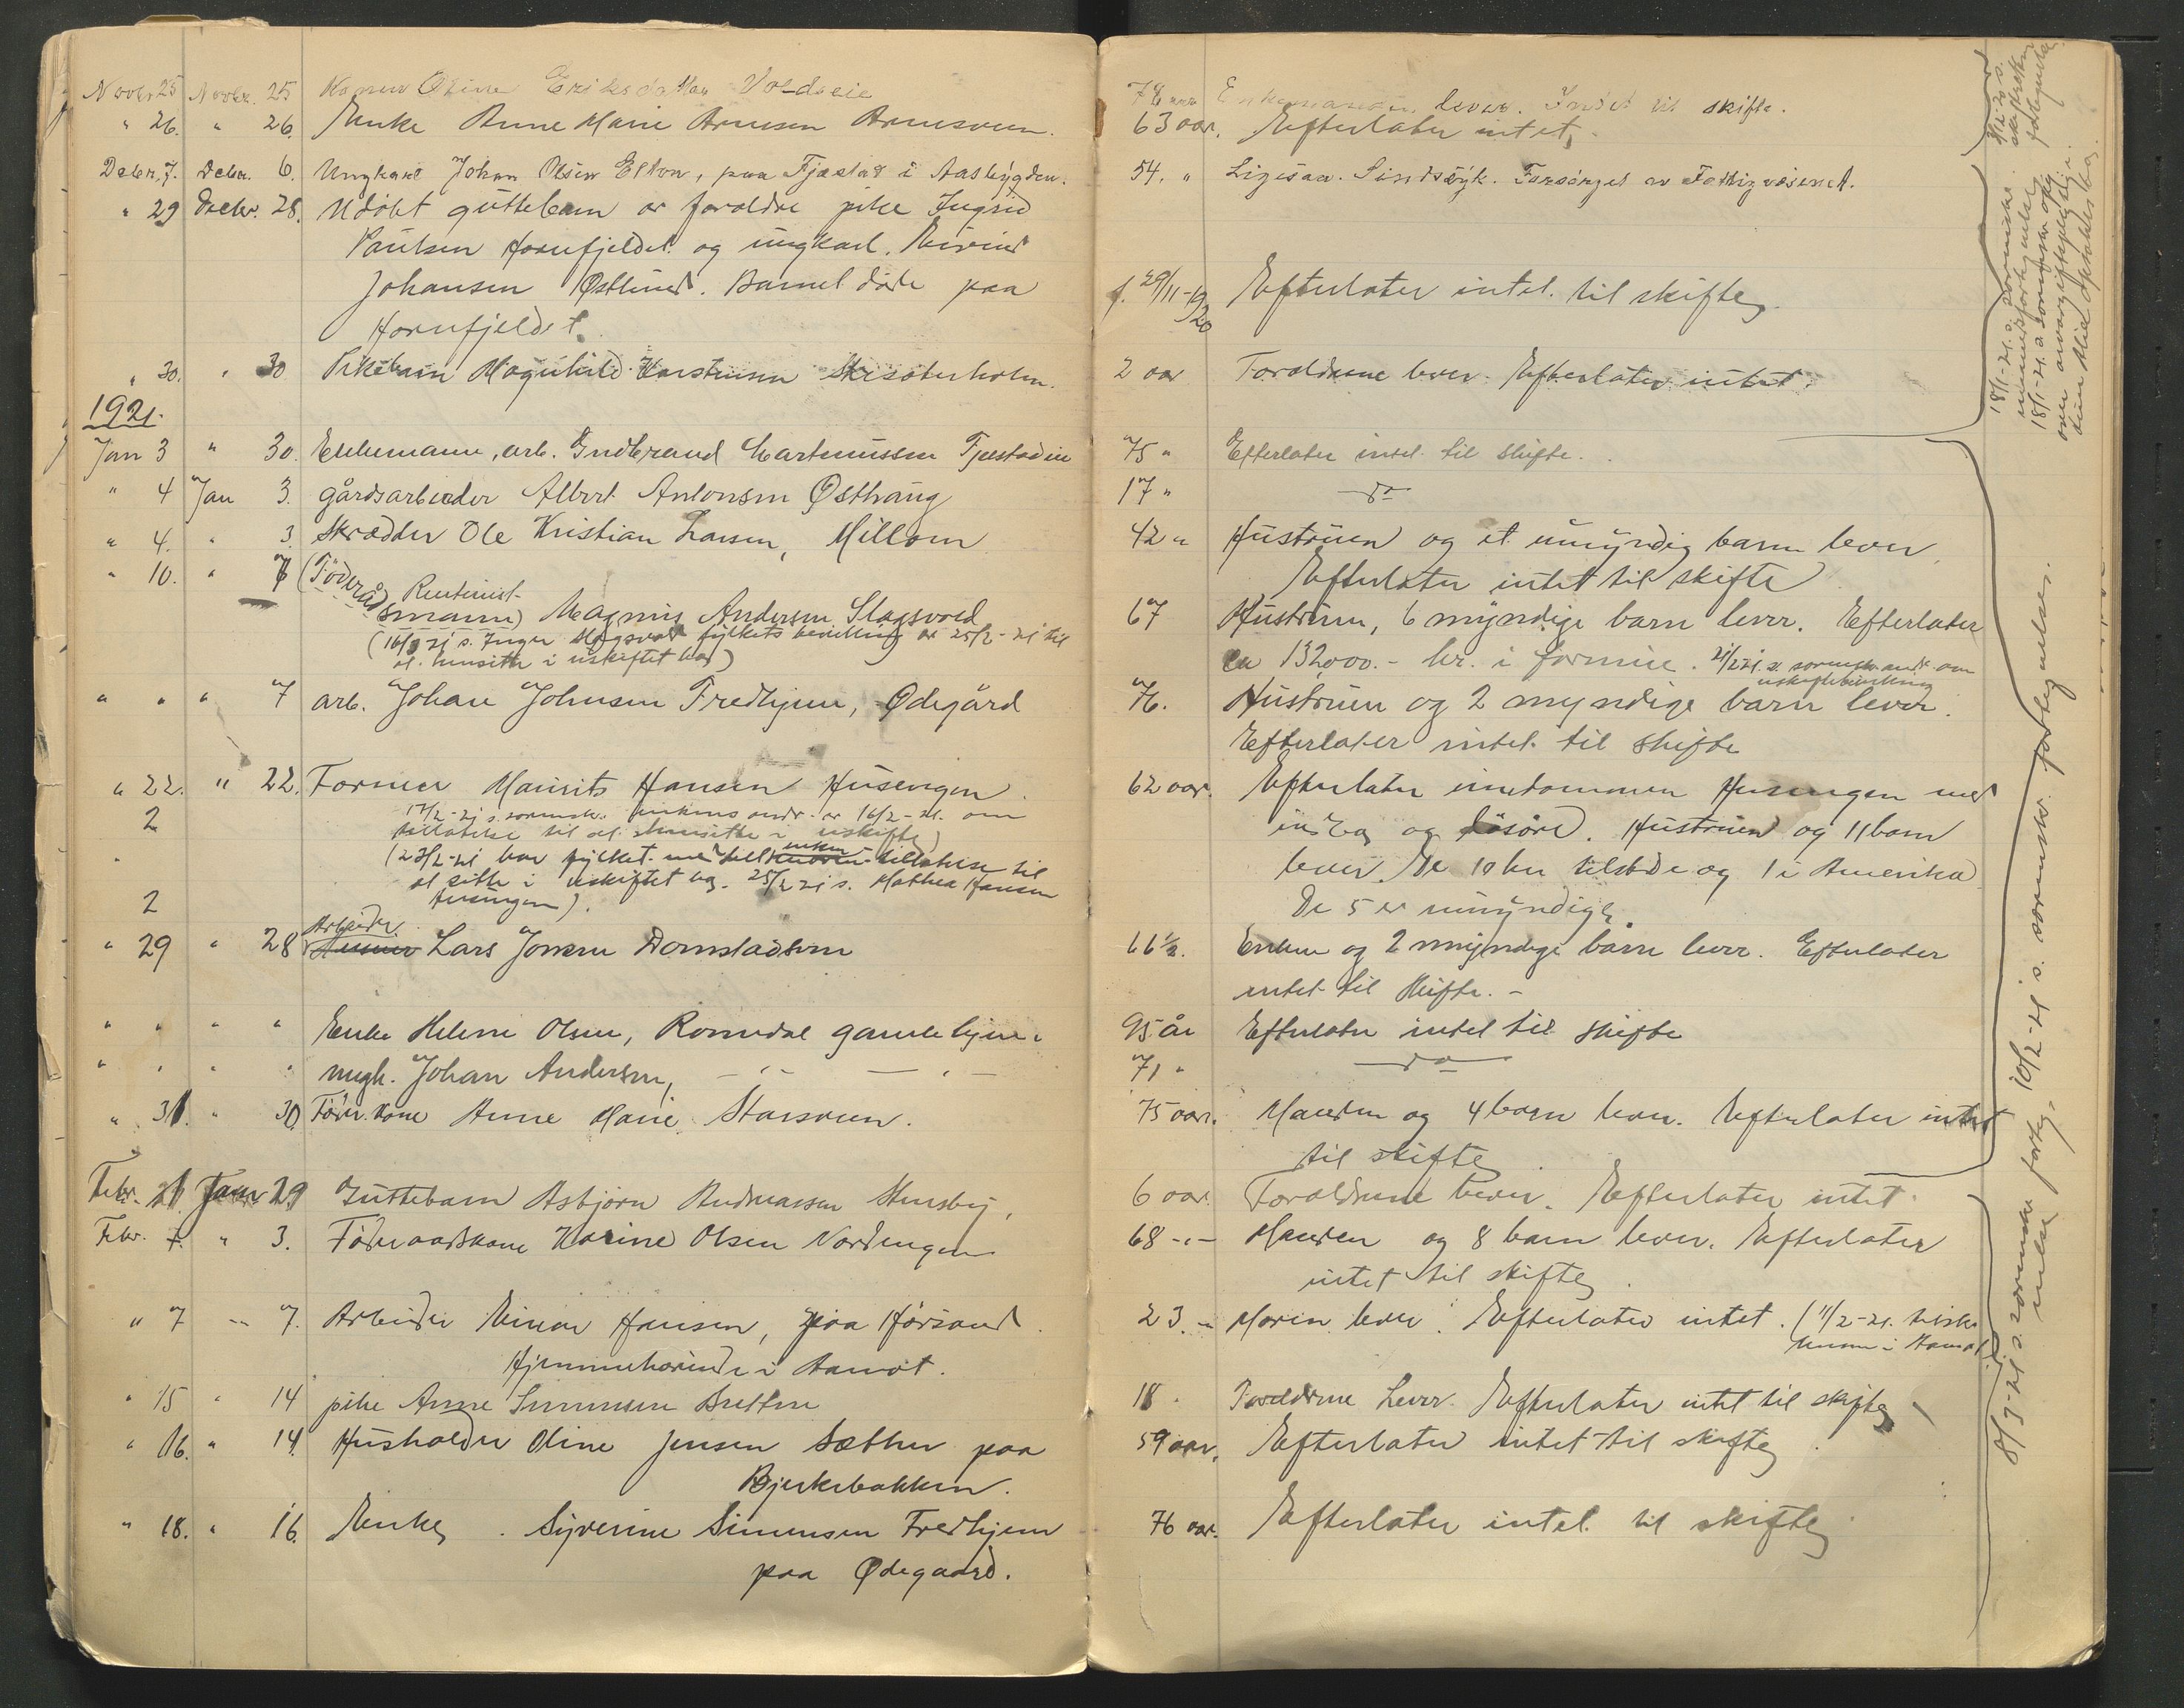 Novbr 25 Novbr. 25 Konen Oline Eriksdatter Voldseie
" 26. " 26. Enke Anne Marie Arnesen Arnesveen.
Debr. 7. Debr. 6. Ungkarl Johan Olsen Elton, paa Fjæstad i Aasbygden.
" 29 Decbr. 28. Udøbt guttebarn av foreldre pike Ingrid
Paulsen Hornfjeldet og ungkarl. Eivind
Johansen Østlund. Barnet døde paa
Hornfjeldet.
" 30. " 30 Pikebarn Magnhild Karstensen
1921.
Jan 3 " 30. Enkemann, arb. Gudbrand Martinussen Fjestadeie
" 4 Jan 3. gårdsarbeider Albert Antonsen Østhaug
" 4. " 3. Skrædder Ole Kristian Larsen, Millom
" 10. " 7 (Føderåds
Rentenist
smann) Magnus Andersen Slagsvold
(16/3 21 s. Inger Slagsvold fylkets bevilling av 25/2-21 til
at hensitte i uskiftet bo)
" " " 7 arb. Johan Johnsen Fredhjem, Ødegård
" 22. " 22. Former Maurits Hansen Husengen.
2 17/2-21 s. sorenskr. enkens andr. av 16/2-21. om
tillatelse til at hensitte i uskifte)
(23/2-21 har fylket meddelt enken tillatelse til
at sitte i uskiftet bo. 25/2 21 s. Mathea Hansen
2 Husengen).
Arbeider
" 29 " 28 Lars Jonsen Domstadsveen
" " " " Enke Helene Olsen, Romedal gamlehjem.
" " " " ungk. Johan Andersen, — " — " —
" 31. " 30 Føder. kone Anne Marie Starsveen.
Febr. 1. Janr 29 Guttebarn Asbjørn Andreassen Stensby,
Febr. 7. " 3. Føderaadskone Karine Olsen Nordengen
" 7 " 7. Arbeider Einar Hansen, paa Hørsand.
Hjemmehørende i Aamot.
" 15 " 14 pike Anne Simensen Bretten
" 16. " 14 Husholder Oline Jensen Sæther paa
Bjerkebakken.
" 18. " 16. Enke Syverine Simensen Fredhjem
paa Ødegaard.
78 aar Enkemanden lever. Intet til skifte.
63 aar. Efterlater intet.
54. " Ligesaa. Sindssyk. Forsørget av Fattigvæsenet.
f. 29/11-1920 Efterlater intet til skifte
2 aar Foreldrene lever. Efterlater intet.
75 " Efterlater intet til skifte.
17 " do
42 " Hustruen og et umyndig barn lever
Efterlater intet til skifte
67 Hustruen, 6 myndige barn lever. Efterlater
ca 132,000.- kr. i formue. 21/2 21. s. sorenskr. andr. om
uskiftebevilling
76. Hustruen og 2 myndige barn lever.
Efterlater intet til skifte
62 aar. Efterlater eiendommen Husengen med
indbo og løsøre. Hustruen og 11 barn
lever. De 10 her tilstede og 1 i Amerika
De 5 er umyndige.
66 1/2. Enken og 2 myndige barn lever. Efterlater
intet til skifte. -
95 år Efterlater intet til skifte
71 " do
75 aar. Manden og 4 barn lever. Efterlater intet
til skifte
6 aar. Foreldrene lever. Efterlater intet.
68 -"- Manden og 8 barn lever. Efterlater
intet til skifte.
23. - Moren lever. Efterlater intet. (11/2-21. tilskr.
i Aamot)
18 . Foreldrene lever. Efterlater intet til skifte
59 aar. Efterlater intet til skifte.
76 aar. Efterlater intet til skifte
18/1-21. s. sorenskr.
10/2-21 s. sorenskr. fortegnelser.
8/3-21 s. sorenskr. forteg-
nelse